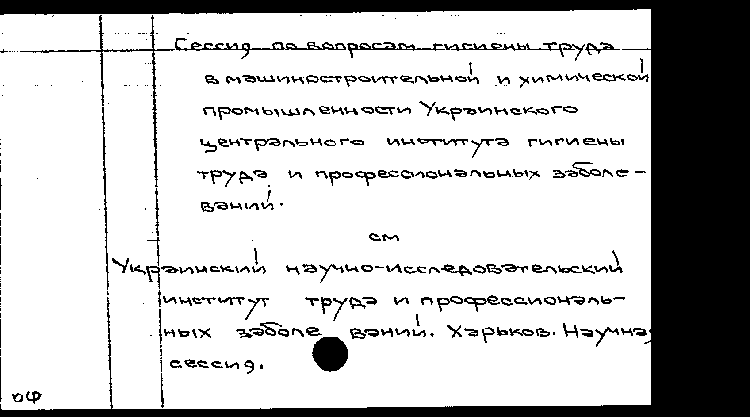 Сессия по вопросам гигиены труда
в машиностроительной и химической
промышленности Украинского
центрального института гигиены
труда и профессиональных заболе-
ваний.
см
Украинский научно-исследовательский
институт труда и профессиональ-
ных заболе ваний. Харьков. Научная
сессия.
оф